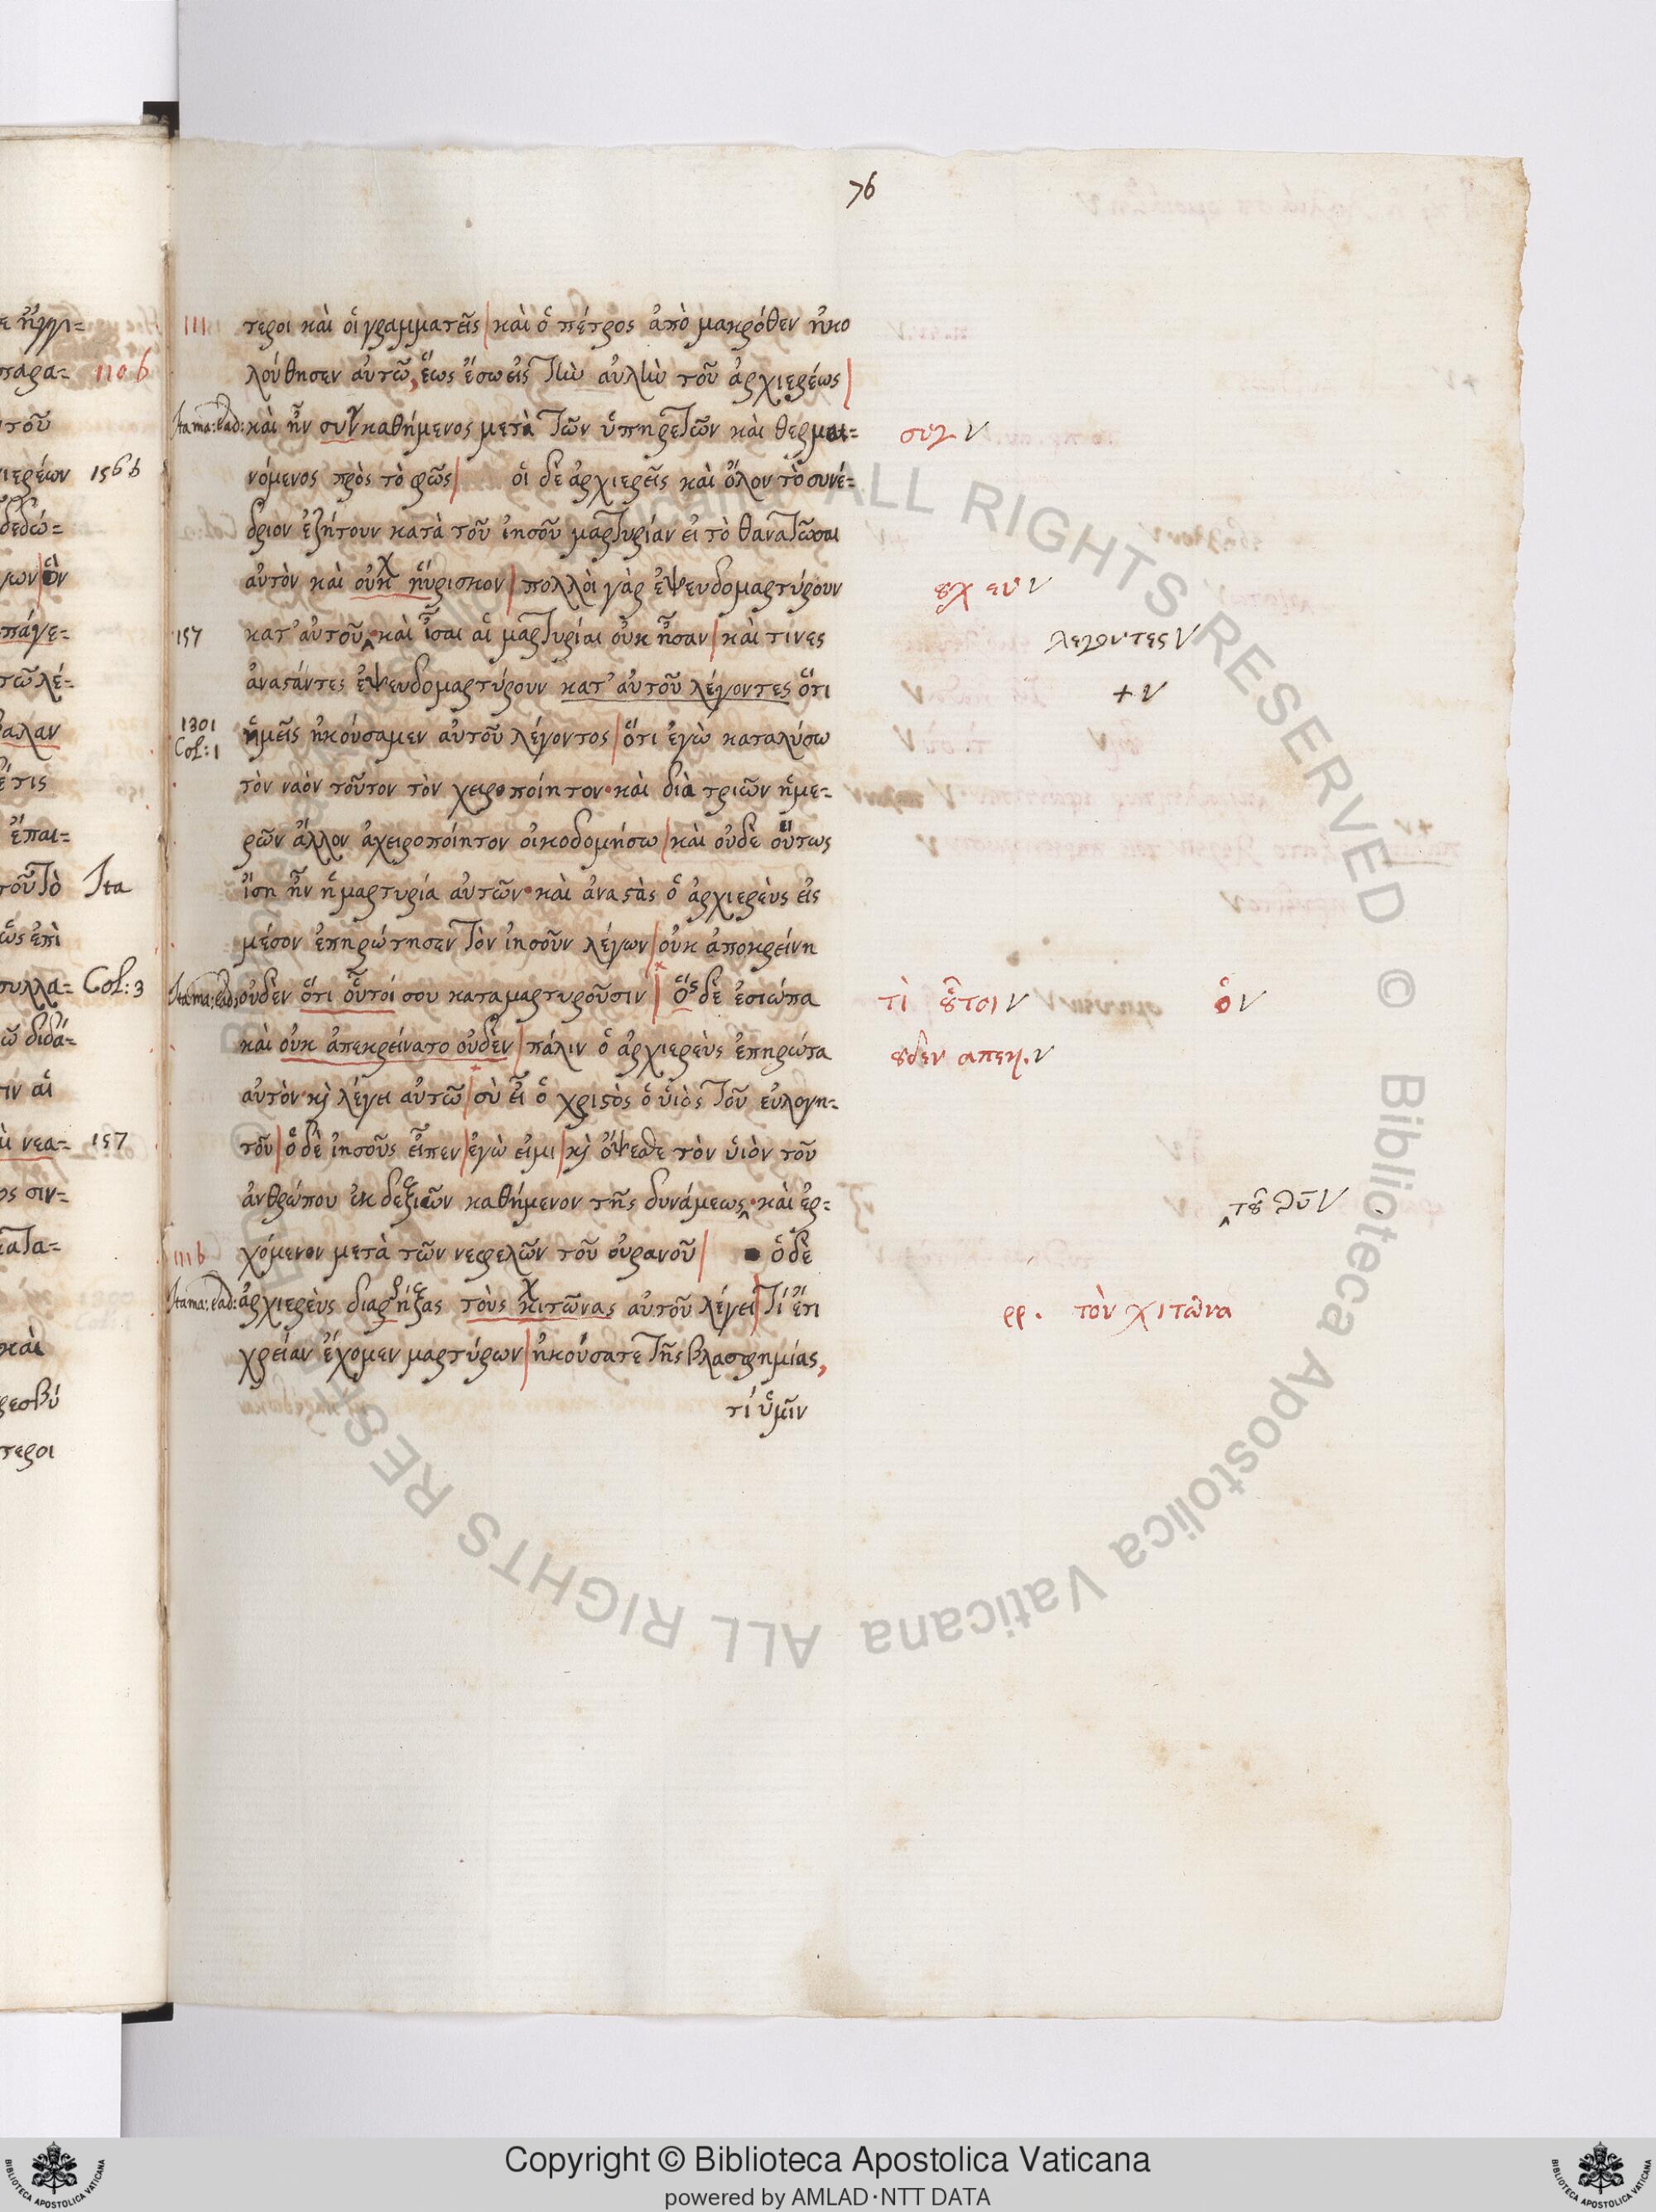 76
111 τεροι καὶ οἱ γραμματεῖς | καὶ ὁ πέτρος ἀπὸ μακρόθεν ἠκο
λούθησεν αὐτῶ, ἕως ἔσω εἰς τὴν αὐλὴν τοῦ ἀρχιερέως |
Ita ma: ead: καὶ ἦν συνκαθήμενος μετὰ τῶν ὑπηρετῶν καὶ θερμαι= συγ V
νόμενος πρὸς τὸ φῶς | οἱ δὲ ἀρχιερεῖς καὶ ὅλον τὸ συνέ=
δριον ἐζήτουν κατὰ τοῦ ἰησοῦ μαρτυρίαν εἰ τὸ θανατῶσαι
αὐτὸν καὶ οὐκ ηὕρισκον | πολλοὶ γὰρ ἐψευδομαρτύρουν ȣχ ευ V
157 κατ' αὐτοῦ‸· καὶ ἶσαι αἱ μαρτυρίαι οὐκ ἦσαν | καὶ τινες λεγοντες V
ἀναϛάντες ἐψευδομαρτύρουν κατ' αὐτοῦ λέγοντες ὅτι + V
1301 Col: 1 ἡμεῖς ἠκούσαμεν αὐτοῦ λέγοντος | ὅτι ἐγὼ καταλύσω
τὸν ναὸν τοῦτον τὸν χειροποίητον· καὶ διὰ τριῶν ἡμε=
ρῶν ἄλλον ἀχειροποίητον οἰκοδομήσω | καὶ οὐδὲ οὕτως
ἴση ἦν ἡ μαρτυρία αὐτῶν· καὶ ἀναϛὰς ὁ ἀρχιερεὺς εἰς
μέσον ἐπηρώτησεν τὸν ἰησοῦν λέγων | οὐκ ἀποκρείνη
Ita ma: ead: οὐδὲν ὅτι οὗτοί σου καταμαρτυροῦσιν | Ὅς δὲ ἐσιώπα τὶ ȣ̃τοι V ὁ V
καὶ οὐκ ἀπεκρείνατο οὐδὲν | πάλιν ὁ ἀρχιερεὺς ἐπηρώτα ȣδεν απεκ. V
αὐτὸν· κ̀ λέγει αὐτῶ | σὺ εἶ ὁ χριϛὸς ὁ ὑιὸς τοῦ εὐλογη=
τοῦ | ὁ δὲ ἰησοῦς εἶπεν | ἐγὼ εἰμι | κ̀ ὄψεσθε τὸν ὑιὸν τοῦ
ἀνθρώπου ἐκ δεξιῶν καθήμενον τῆς δυνάμεως‸· καὶ ἐρ= ‸τȣ̃ θῦ V
111 b χόμενον μετὰ τῶν νεφελῶν τοῦ οὐρανοῦ | ὁ δὲ
Ita ma: ead: ἀρχιερεὺς διαρήξας τοὺς κιτῶνας αὐτοῦ λέγει | Τί ἔτι ρρ. τὸν χιτῶνα
χρείαν ἔχομεν μαρτύρων | ἠκούσατε τῆς βλασφημίας,
τί ὑμῖν
110 b
156 b
Ita
Col: 3
157
Copyright © Biblioteca Apostolica Vaticana
powered by AMLAD·NTT DATA